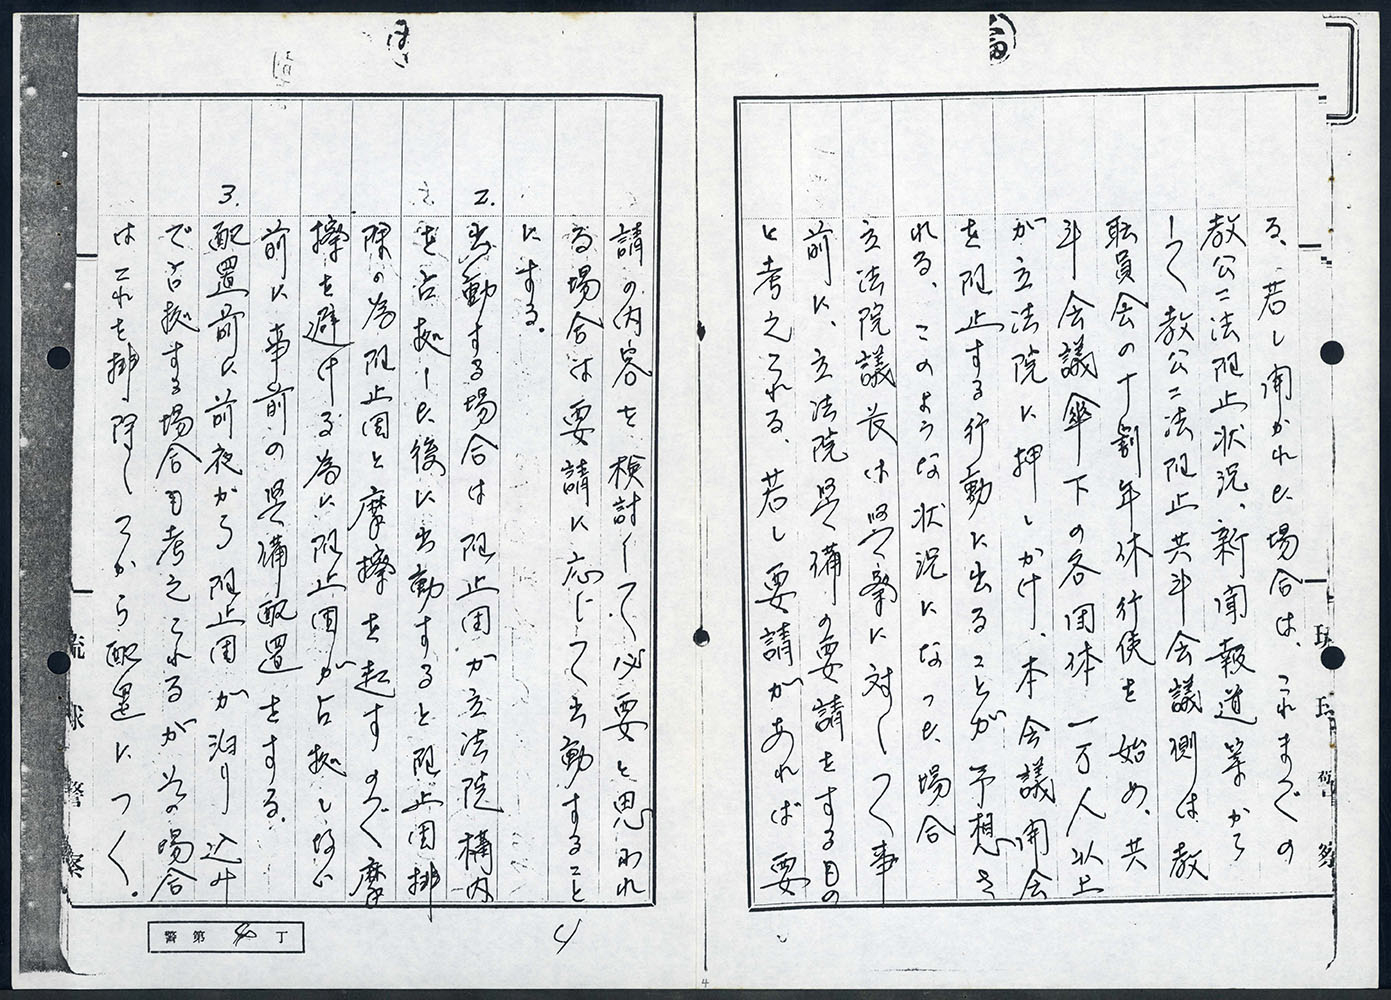 る、若し開かれた場合は、これまでの
教公二法阻止状況、新聞報道等から
して教公二法阻止共斗会議側は教
職員会の十割年休行使を始め、共
斗会議傘下の各団体一万人以上
が立法院に押しかけ、本会議開会
を阻止する行動に出ることが予想さ
れる、このような状況になった場合
立法院議長は警察に対して事
前に、立法院警備の要請をするもの
と考えられる、若し要請があれば要
請の内容を検討して必要と思われ
る場合は要請に応じて出動すること
にする。
2. 出動する場合は阻止団が立法院構内
を占拠した後に出動すると阻止団排
除の為阻止団と摩擦を起すので摩
擦を避ける為に阻止団が占拠しない
前に事前の警備配置をする。
3. 配置前に前夜から阻止団が泊り込み
で占拠する場合も考えられるが其の場合
はこれを排除してから配置につく。
琉球警察
警第 4 丁
4
4